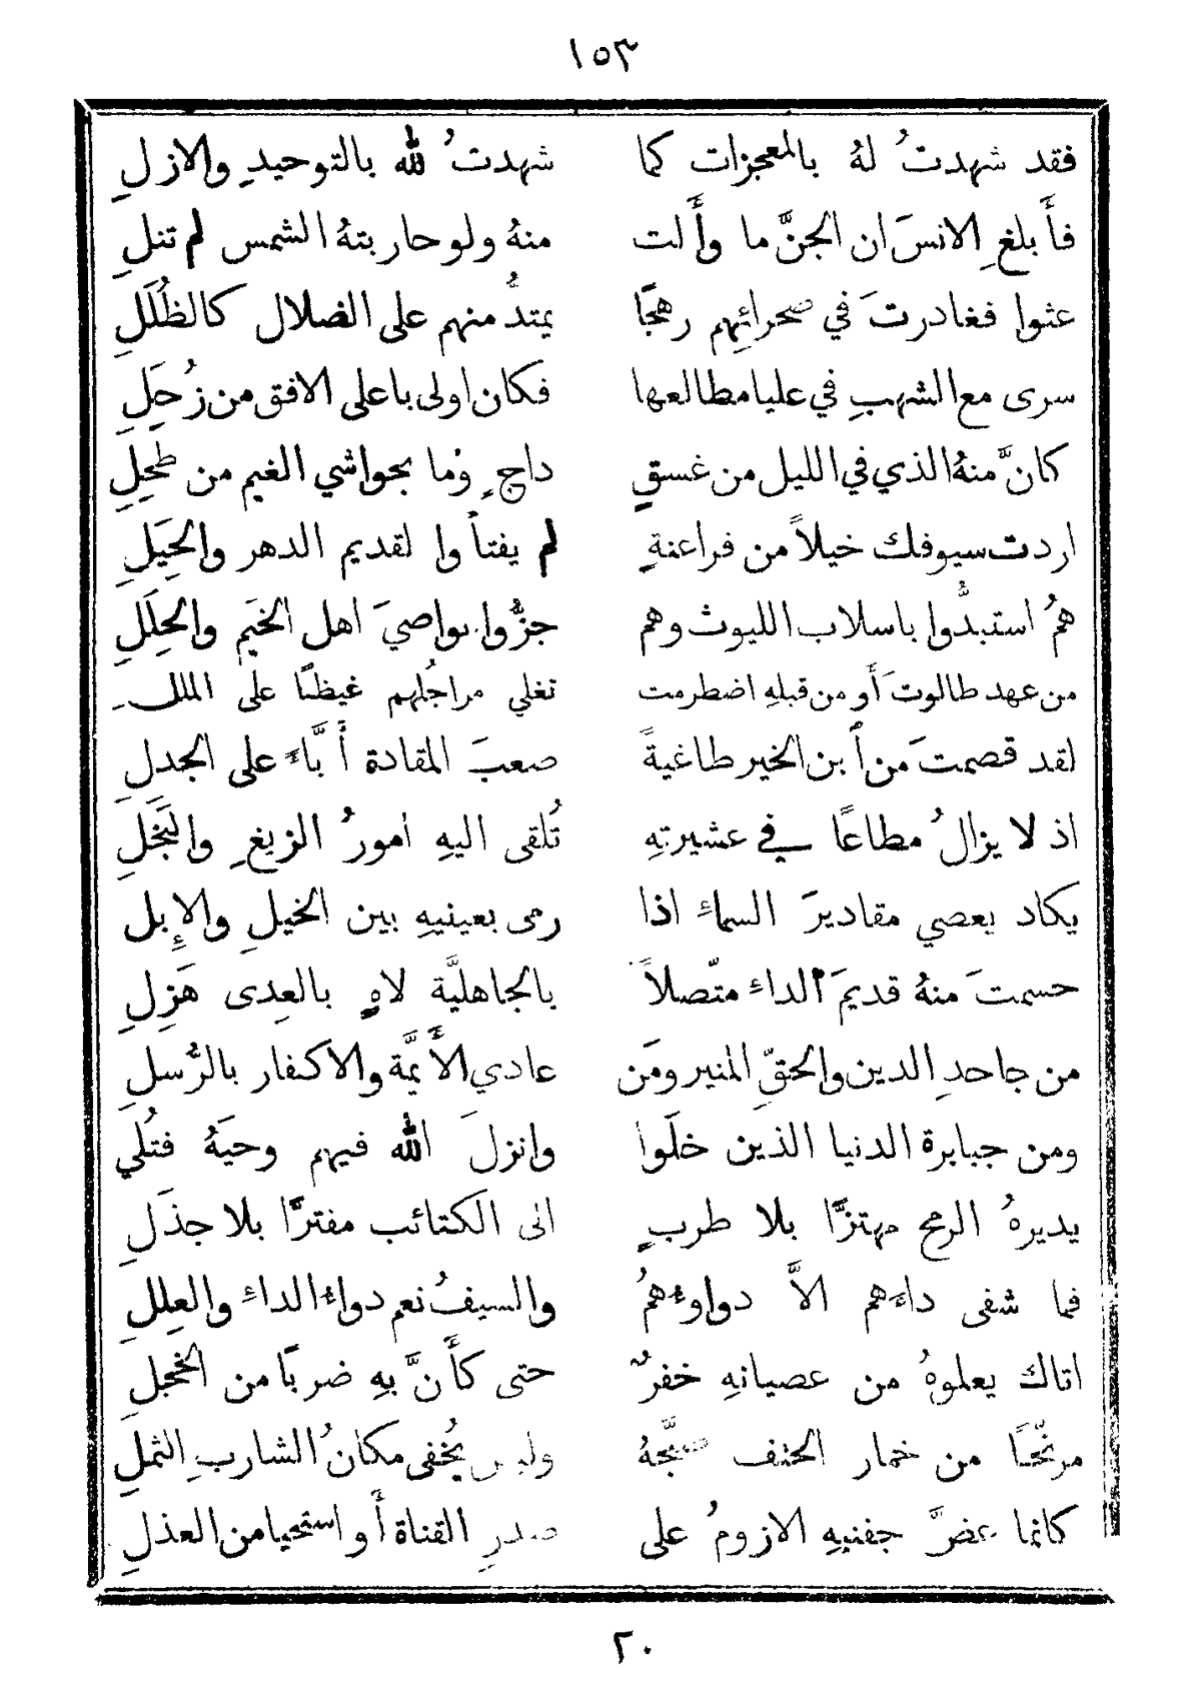 ١٥٣
فقد شهدتُ لهُ بالمعجزات كما شهدتُ لله بالتوحيدِ والازلِ
فأَبلغِ الانسَ ان الجنَّ ما وأَلت منهُ ولو حاربتهُ الشمس لم تنلِ
عثوا فغادرتَ في صحرائهِم رهجًا يمتدُّ منهم على الضلال كالظُلَلِ
سرى مع الشهبِ في عليا مطالعها فكان اولى باعلى الافق من زُحَلِ
كانَّ منهُ الذي في الليل من غسقٍ داجٍ وما بحواشي الغيم من طحلِ
اردت سيوفك خيلاً من فراعنةٍ لم يفتأوا لقديم الدهر والحِيَلِ
همُ استبدُّوا باسلاب الليوث وهم جزُّوا نواصيَ اهل الخيَم والحِلَلِ
من عهد طالوتَ أَو من قبلهِ اضطرمت تغلي مراجُلهم غيظًا على الملل
لقد قصمتَ من أبن الخير طاغيةً صعبَ المقادة أَبَّاءً على الجدلِ
اذ لا يزالُ مطاعًا في عشيرتهِ تُلقى اليهِ امورُ الزيغِ والبَخَلِ
يكاد يعصي مقاديرَ السماء اذا رمى بعينيهِ بين الخيلِ والإِبل
حسمتَ منهُ قديمَ الداء متّصلاً بالجاهليَّة لاهٍ بالعِدى هَزِلِ
من جاحدِ الدين والحقّ المنير ومَن عادي الأَيمَّة والاكفار بالرُّسلِ
ومن جبابرة الدنيا الذين خلَوا وانزلَ الله فيهم وحيَهُ فتُلي
يديرهُ الرمح مهتزًّا بلا طربٍ الى الكتائب مفترًّا بلا جذَلِ
فما شفى داءَهم الاَّ دواوءُهمُ والسيفُ نعم دواءُ الداءِ والعِللِ
اتاك يعلوهُ من عصيانهِ خفرٌ حتى كأَنَّ بهِ ضربًا من الخجلِ
مرنّحًا من خمار الحتف صبَّحهُ وليس يُخفى مكانُ الشارب الثملِ
كانما عضَّ جفنيهِ الازومُ على صدرِ القناة أَو استحيا من العذلِ
٢٠